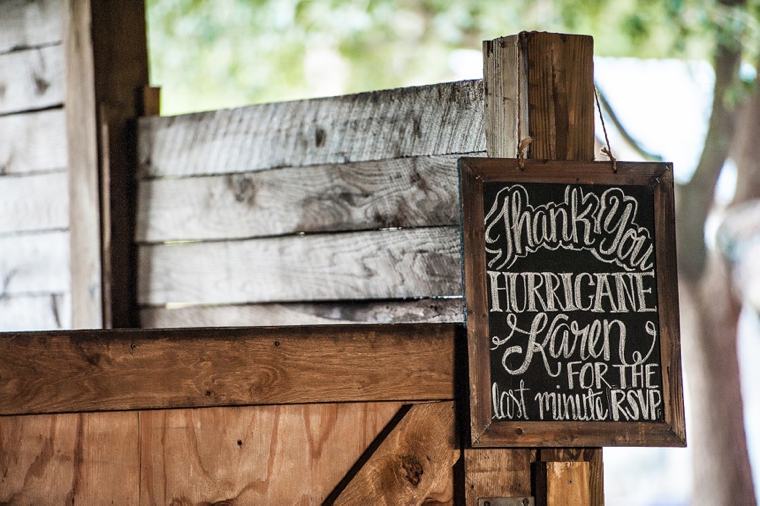 Thank You
HURRICANE
Karen
FOR THE
last minute RSVP